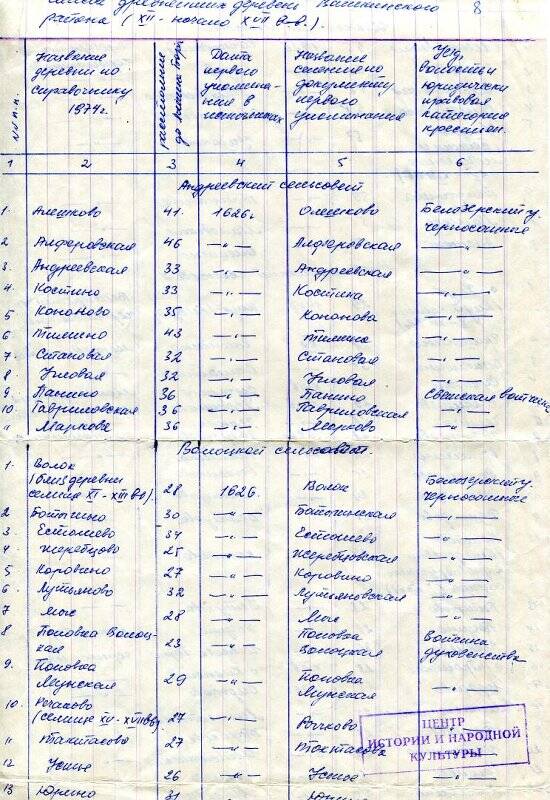 древнейших деревень Вашкинского 8
района (XII - начало XVII в.в.).
№№ п.п.
Название деревни по справочнику 1974г.
расстояние до
Дата первого упомина-ния в источниках
Название селения по документу первого упоминания
Уезд, волость и юридически правовая категория крестьян.
1 2 3 4 5 6
Андреевский сельсовет
1. Алешково 41. 1626г. Олешково Белозерский у. черносошные
2 Алферовская 46 —"— Алферовская —"—
3. Андреевская 33 —"— Андреевская —"—
4 Костино 33 —"— Костина —"—
5 Кононово 35 —"— Кононова —"—
6 Тимино 43 —"— Тимина —"—
7. Становая 32 —"— Становая —"—
8 Угловая 32 —"— Угловая —"—
9 Панино 36 —"— Панино вотчина
10 Гавриловская 36 —"— Гавриловская —"—
11 Маркова 36 —"— Марково —"—
Волоцкой сельсовет.
1. Волок
(близ деревни
селище XI - XIII в.в). 28 1626. Волок Белозерский у. черносошные
2 Ботыгино 30 —"— Батыгинская —"—
3 Естошево 34 —"— Естошево —"—
4. Жеребцово 25 —"— Жеребцовская —"—
5 Коровино 27 —"— Коровино —"—
6. Лутьяново 32 —"— Лутьяновская —"—
7 Мыс 28 —"— Мыс —"—
8 Поповка Волоц-
кая 23 —"— Поповка Волоцкая Вотчина духовенства
9. Поповка
Мунская 29 —"— Поповка Мунская —"—
10. Рочково
(селище XV - XVII вв) 27 —"— Рочково
11 Тактасово 27 —"— Токтасово
12 Устье 26 —"— Устье —"—
13 Юрино 31 —"—
ЦЕНТР
ИСТОРИИ И НАРОДНОЙ
КУЛЬТУРЫ